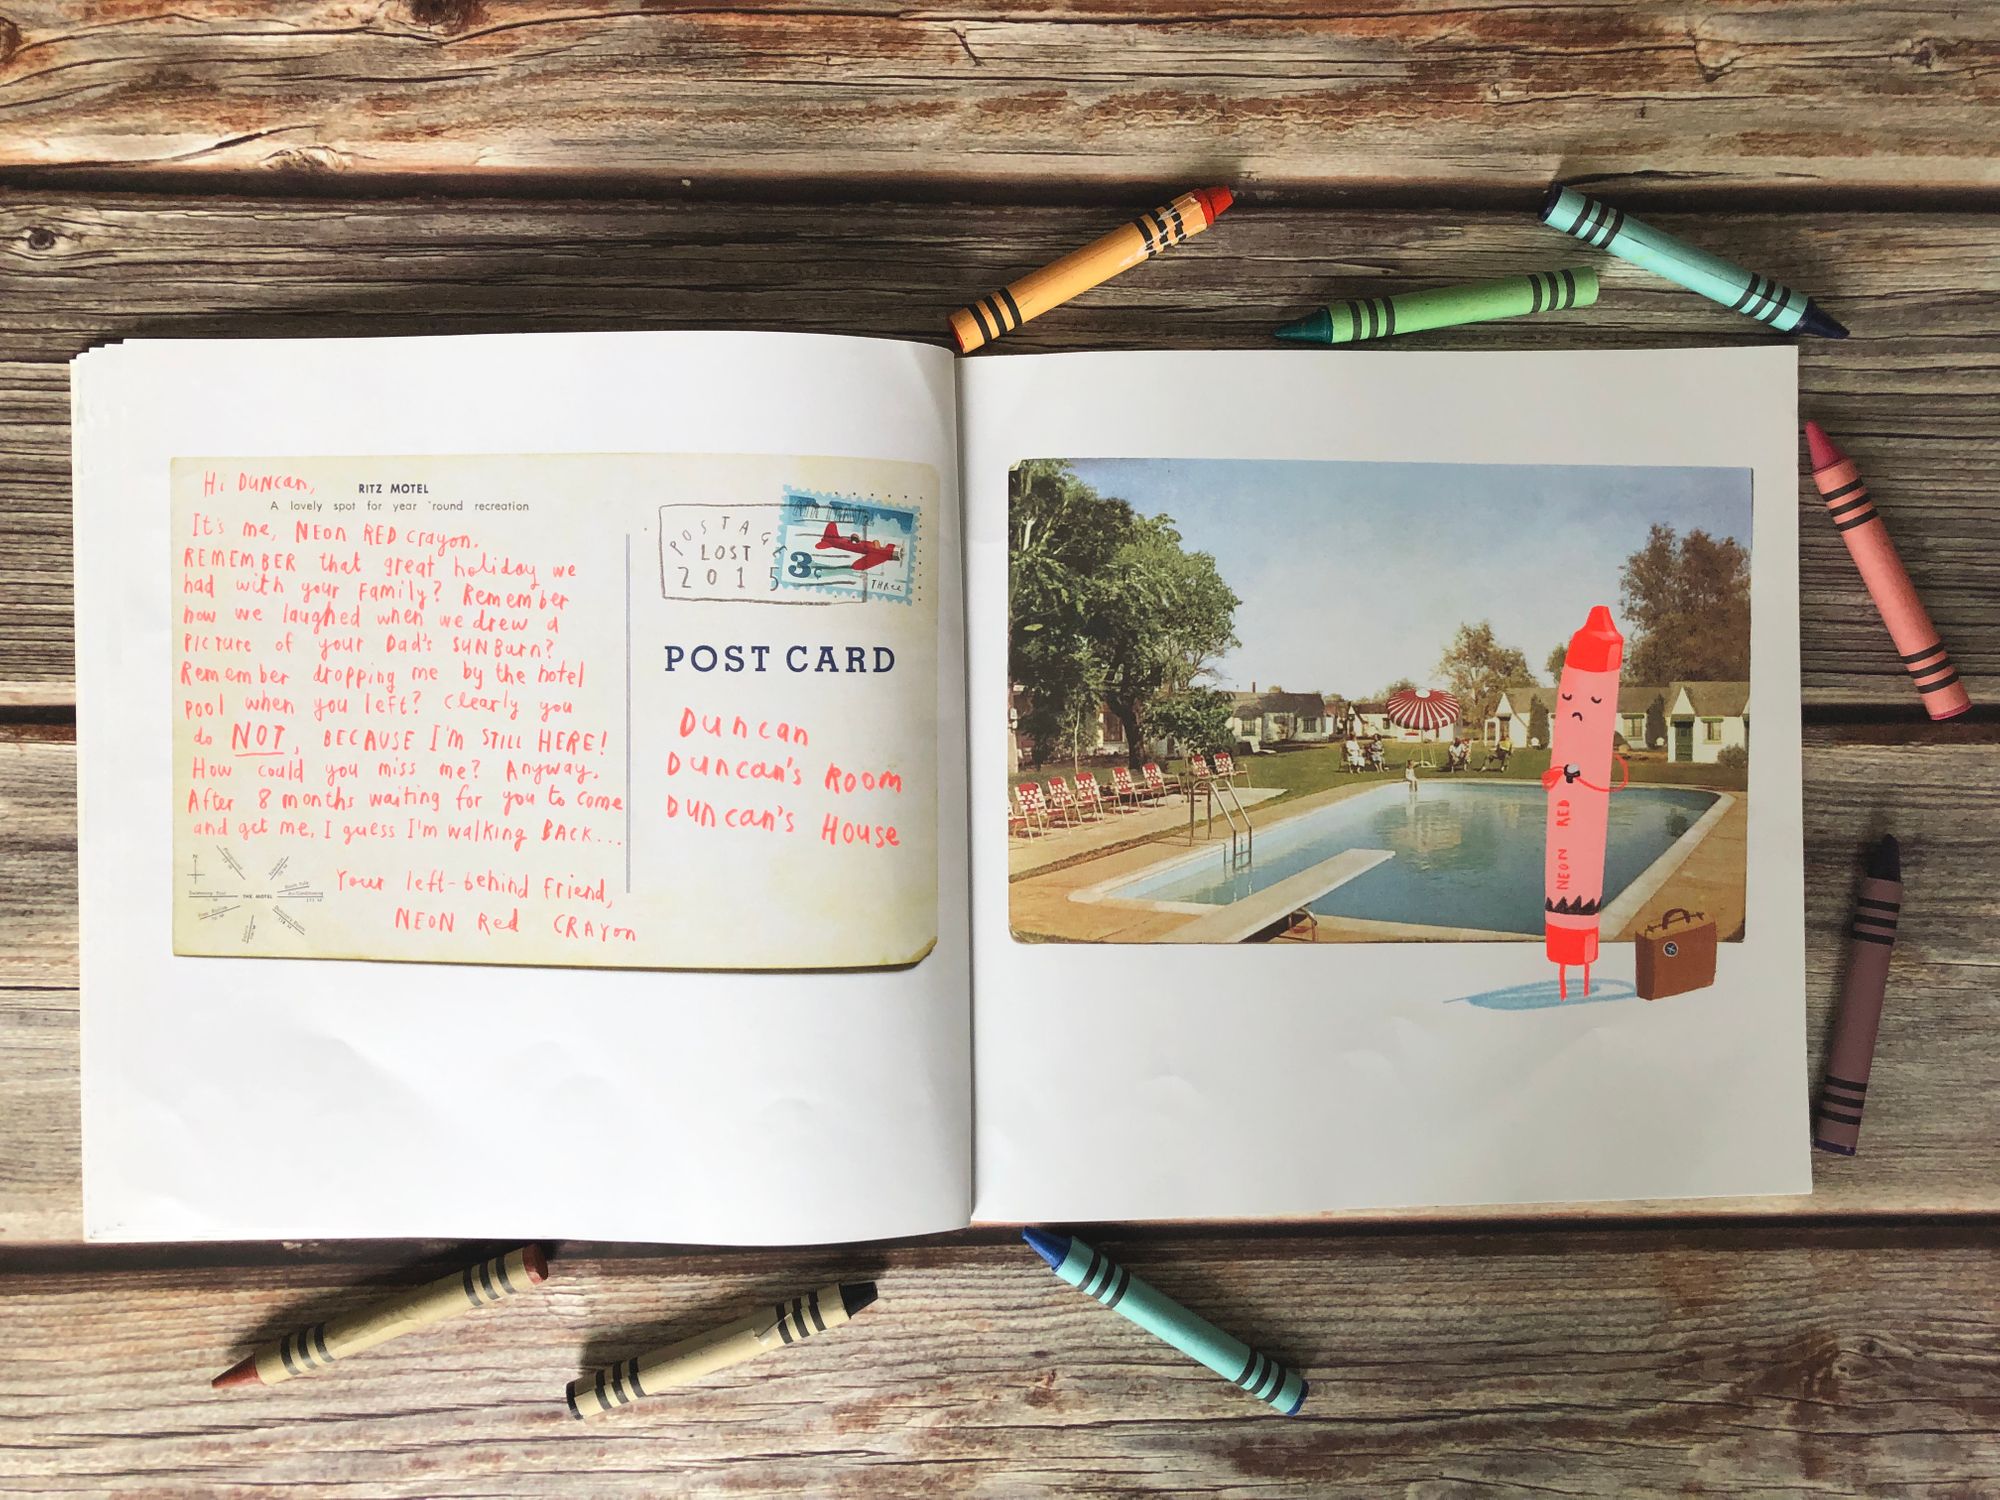 Hi DUNCAN,
RITZ MOTEL
A lovely spot for year 'round recreation
It's me, NEON RED crayon.
REMEMBER that great holiday we
had with your Family? Remember
how we laughed when we drew a
Picture of your Dad's SUNBurn?
Remember dropping me by the hotel
pool when you left? Clearly you
do NOT, BECAUSE I'M STILL HERE!
How could you miss me? Anyway,
After 8 months waiting for you to come
and get me, I guess I'm walking BACK...
Your left-behind Friend,
NEON Red CRAYON
N
THE MOTEL
POSTAGE
LOST
2015
3c
THREE
POST CARD
Duncan
Duncan's Room
Duncan's House
NEON RED